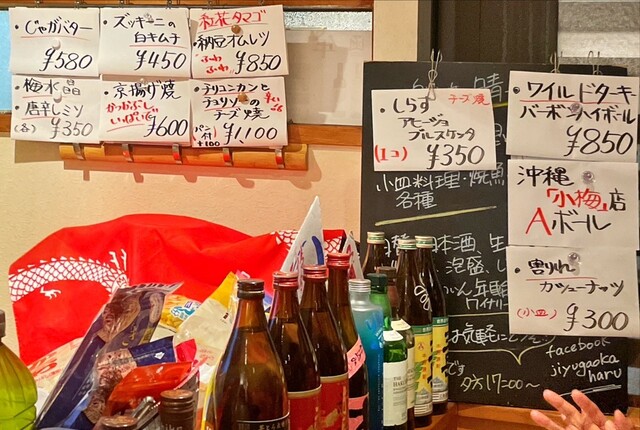 じゃがバター
¥580
ズッキーニの
白キムチ
¥450
納豆オムレツ
ふわ
ふわ
¥850
梅水晶
唐辛しミソ
(各) ¥350
京揚げ焼
かつぶし
いっぱい
¥600
チリコンカンと
チョリソーの
チーズ焼
辛い
パン付
+¥100
¥1,100
しらす
チーズ焼
アヒージョ
ブルスケッタ
(1コ) ¥350
小皿料理・焼魚
各種
日本酒、
泡盛、
ワイナリー
は気軽に
です
夕方17:00〜
facebook
jiyugaoka
haru
ワイルドターキー
バーボンハイボール
¥850
沖縄
「小梅」店
Aボール
割りん
カシューナッツ
(小皿) ¥300